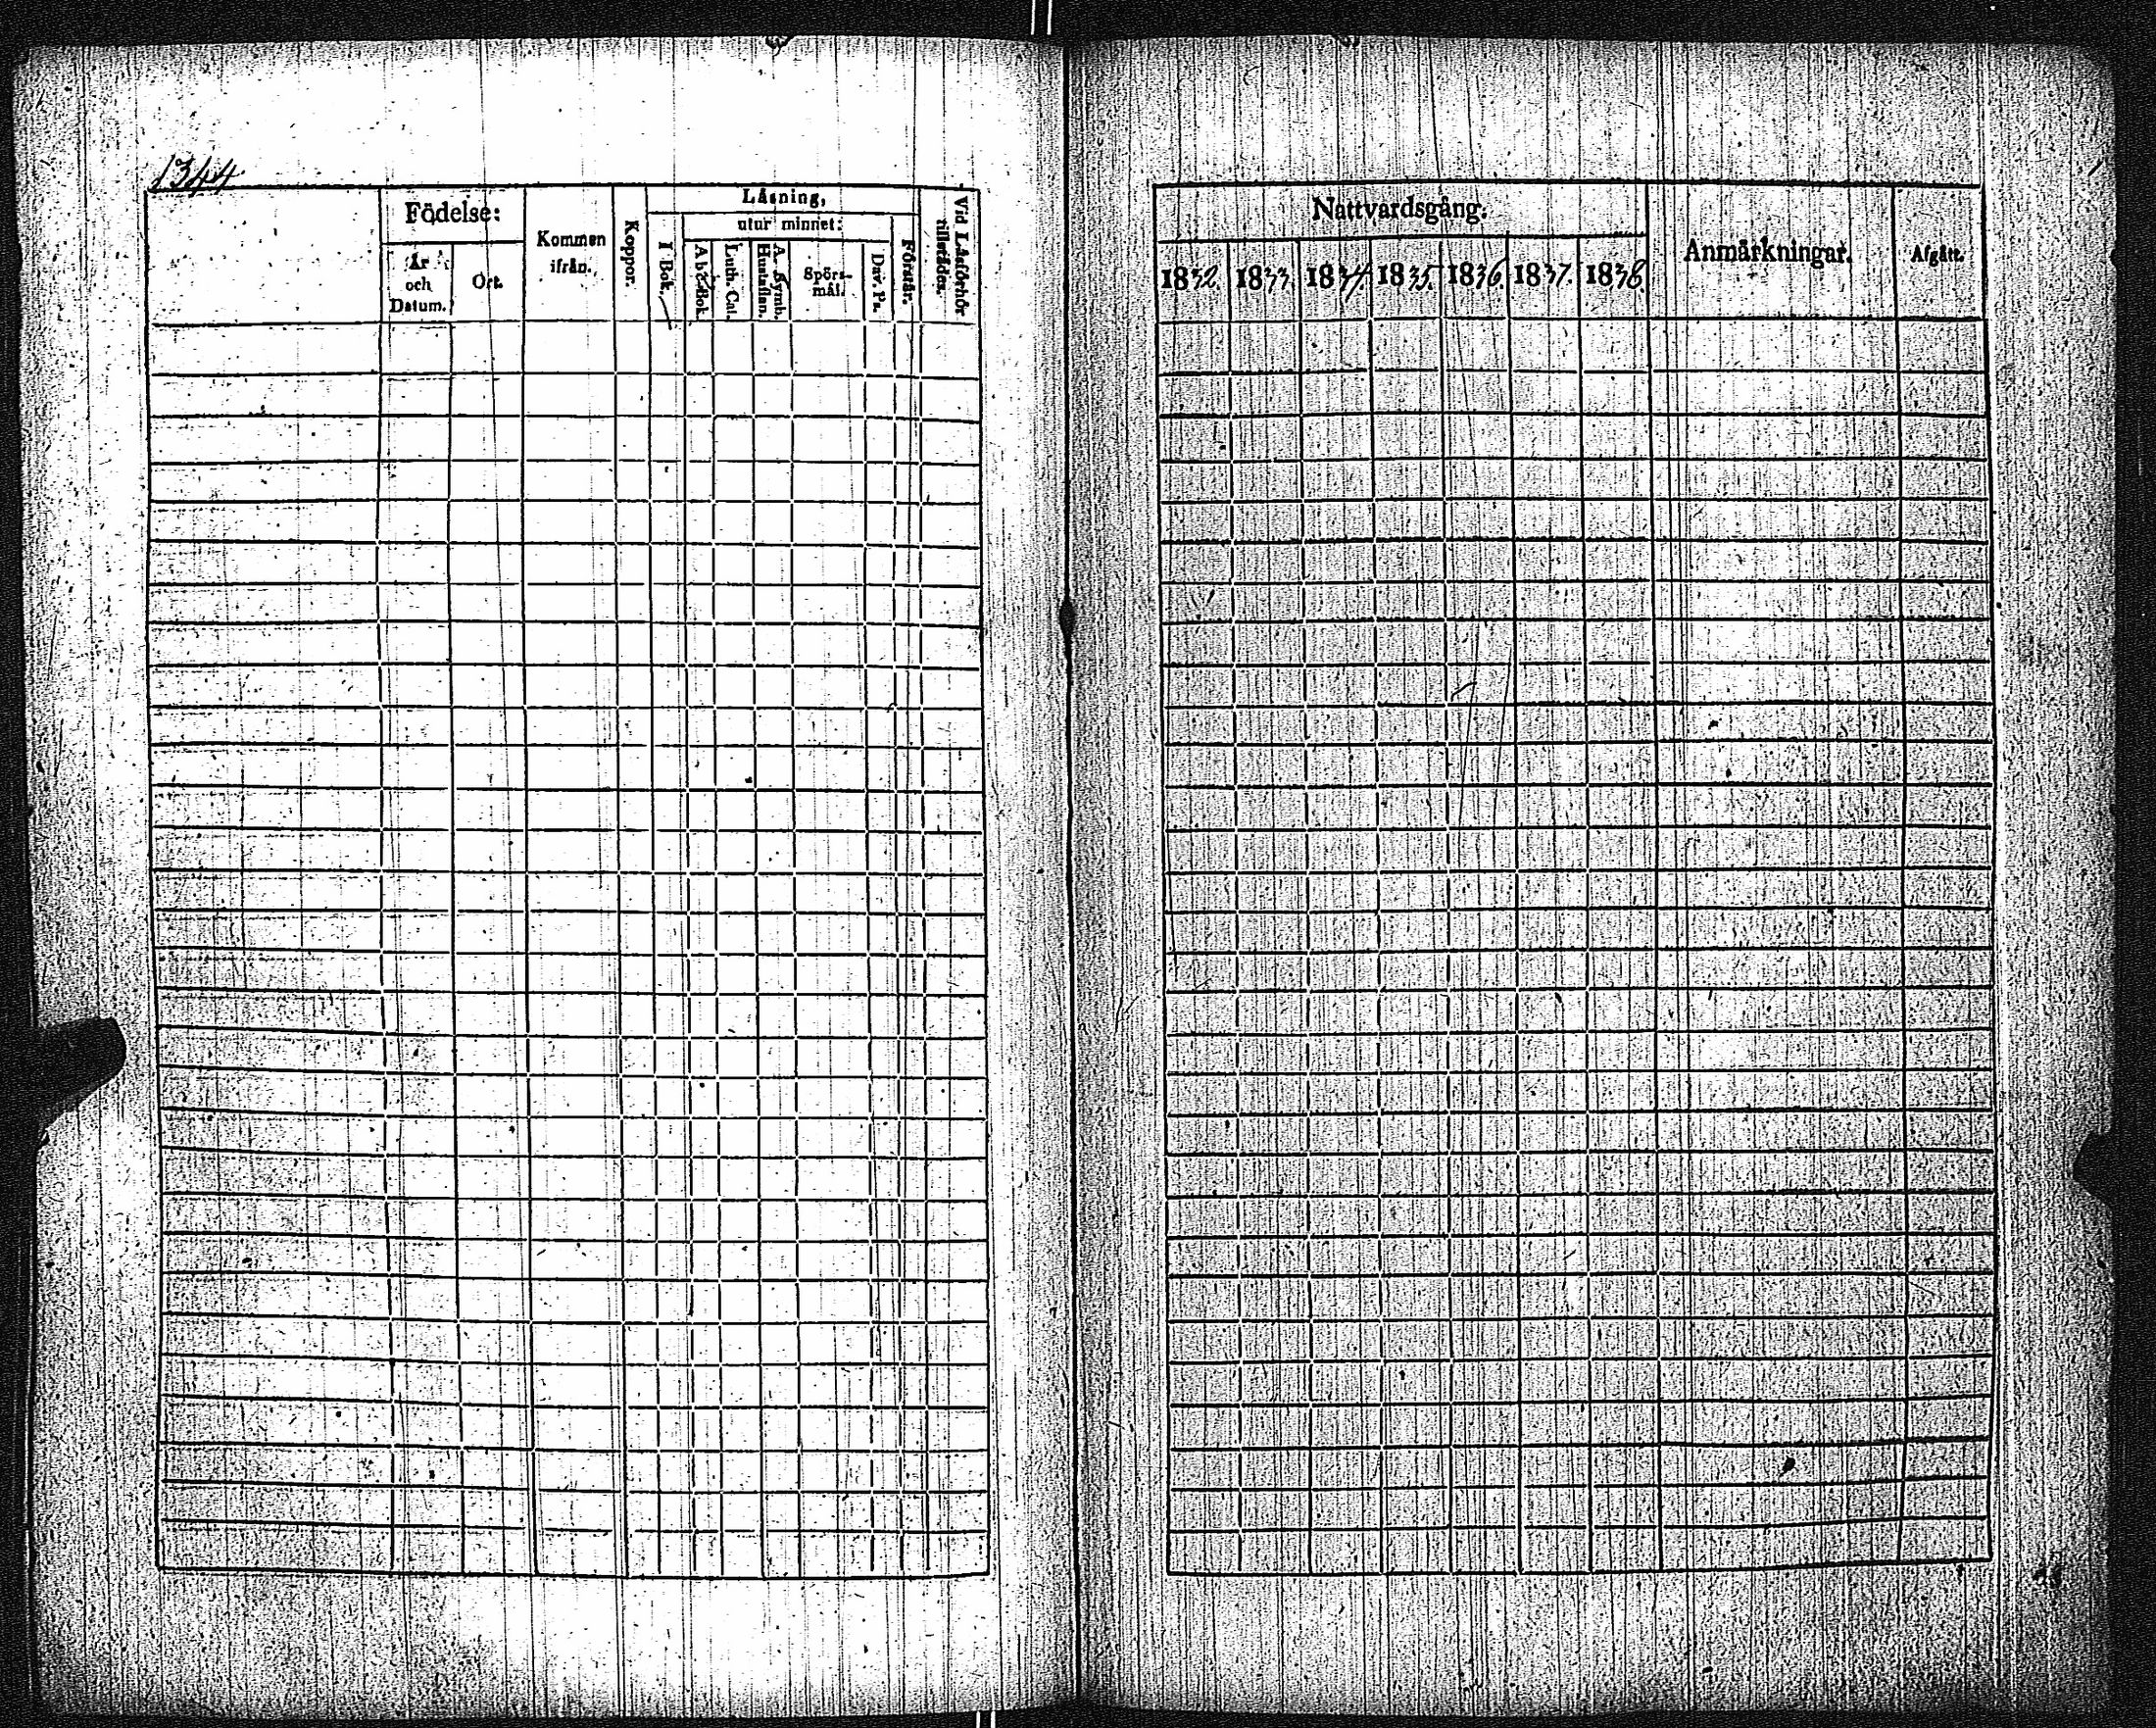 1344
Födelse:
År och Datum.
Ort.
Kommen ifrån.
Koppor.
Läsning,
I Bok.
utur minnet:
A b c Bok.
Luth. Cat.
A. Symb. Hustaflan.
Spörsmål.
Dav. Ps.
Förstår.
Vid Läsförhör tillstädes.
Nattvardsgång:
1832. 1833. 1834. 1835. 1836. 1837. 1838.
Anmärkningar.
Afgått.